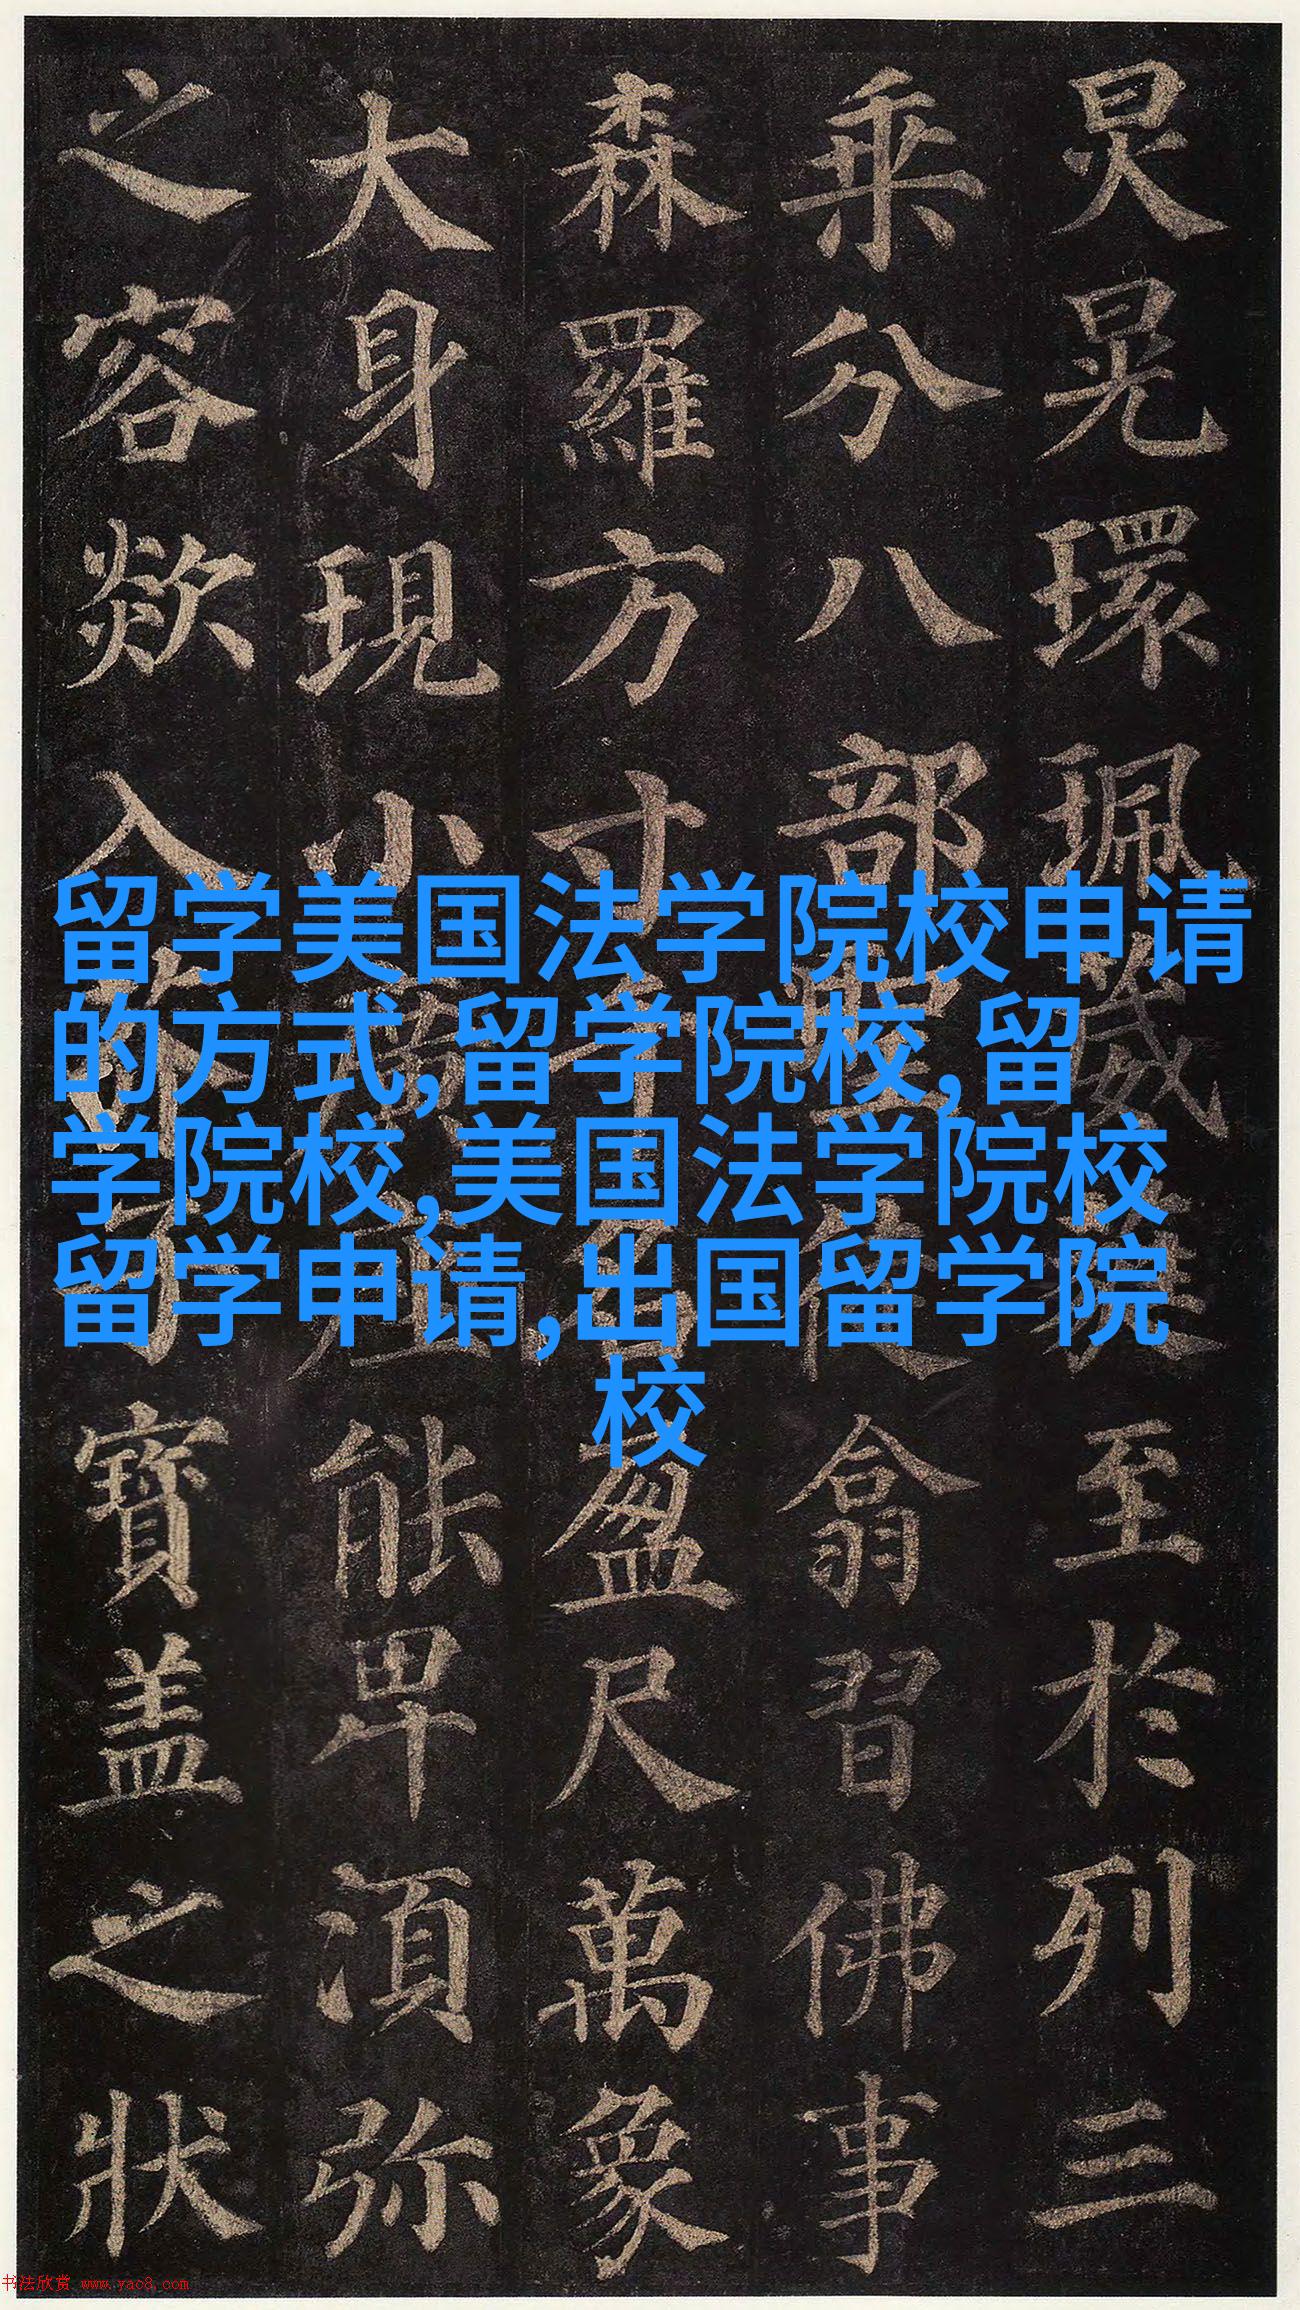 炅晃環珮葳蕤至於列三
乘分八部聖徒翕習佛事
森羅方寸千名盈尺萬象
大身現小廣座能卑湏弥
之容欻入芥子寶盖之狀
留学美国法学院校申请
的方式,留学院校,留
学院校,美国法学院校
留学申请,出国留学院
校
书法欣赏 www.yac8.com